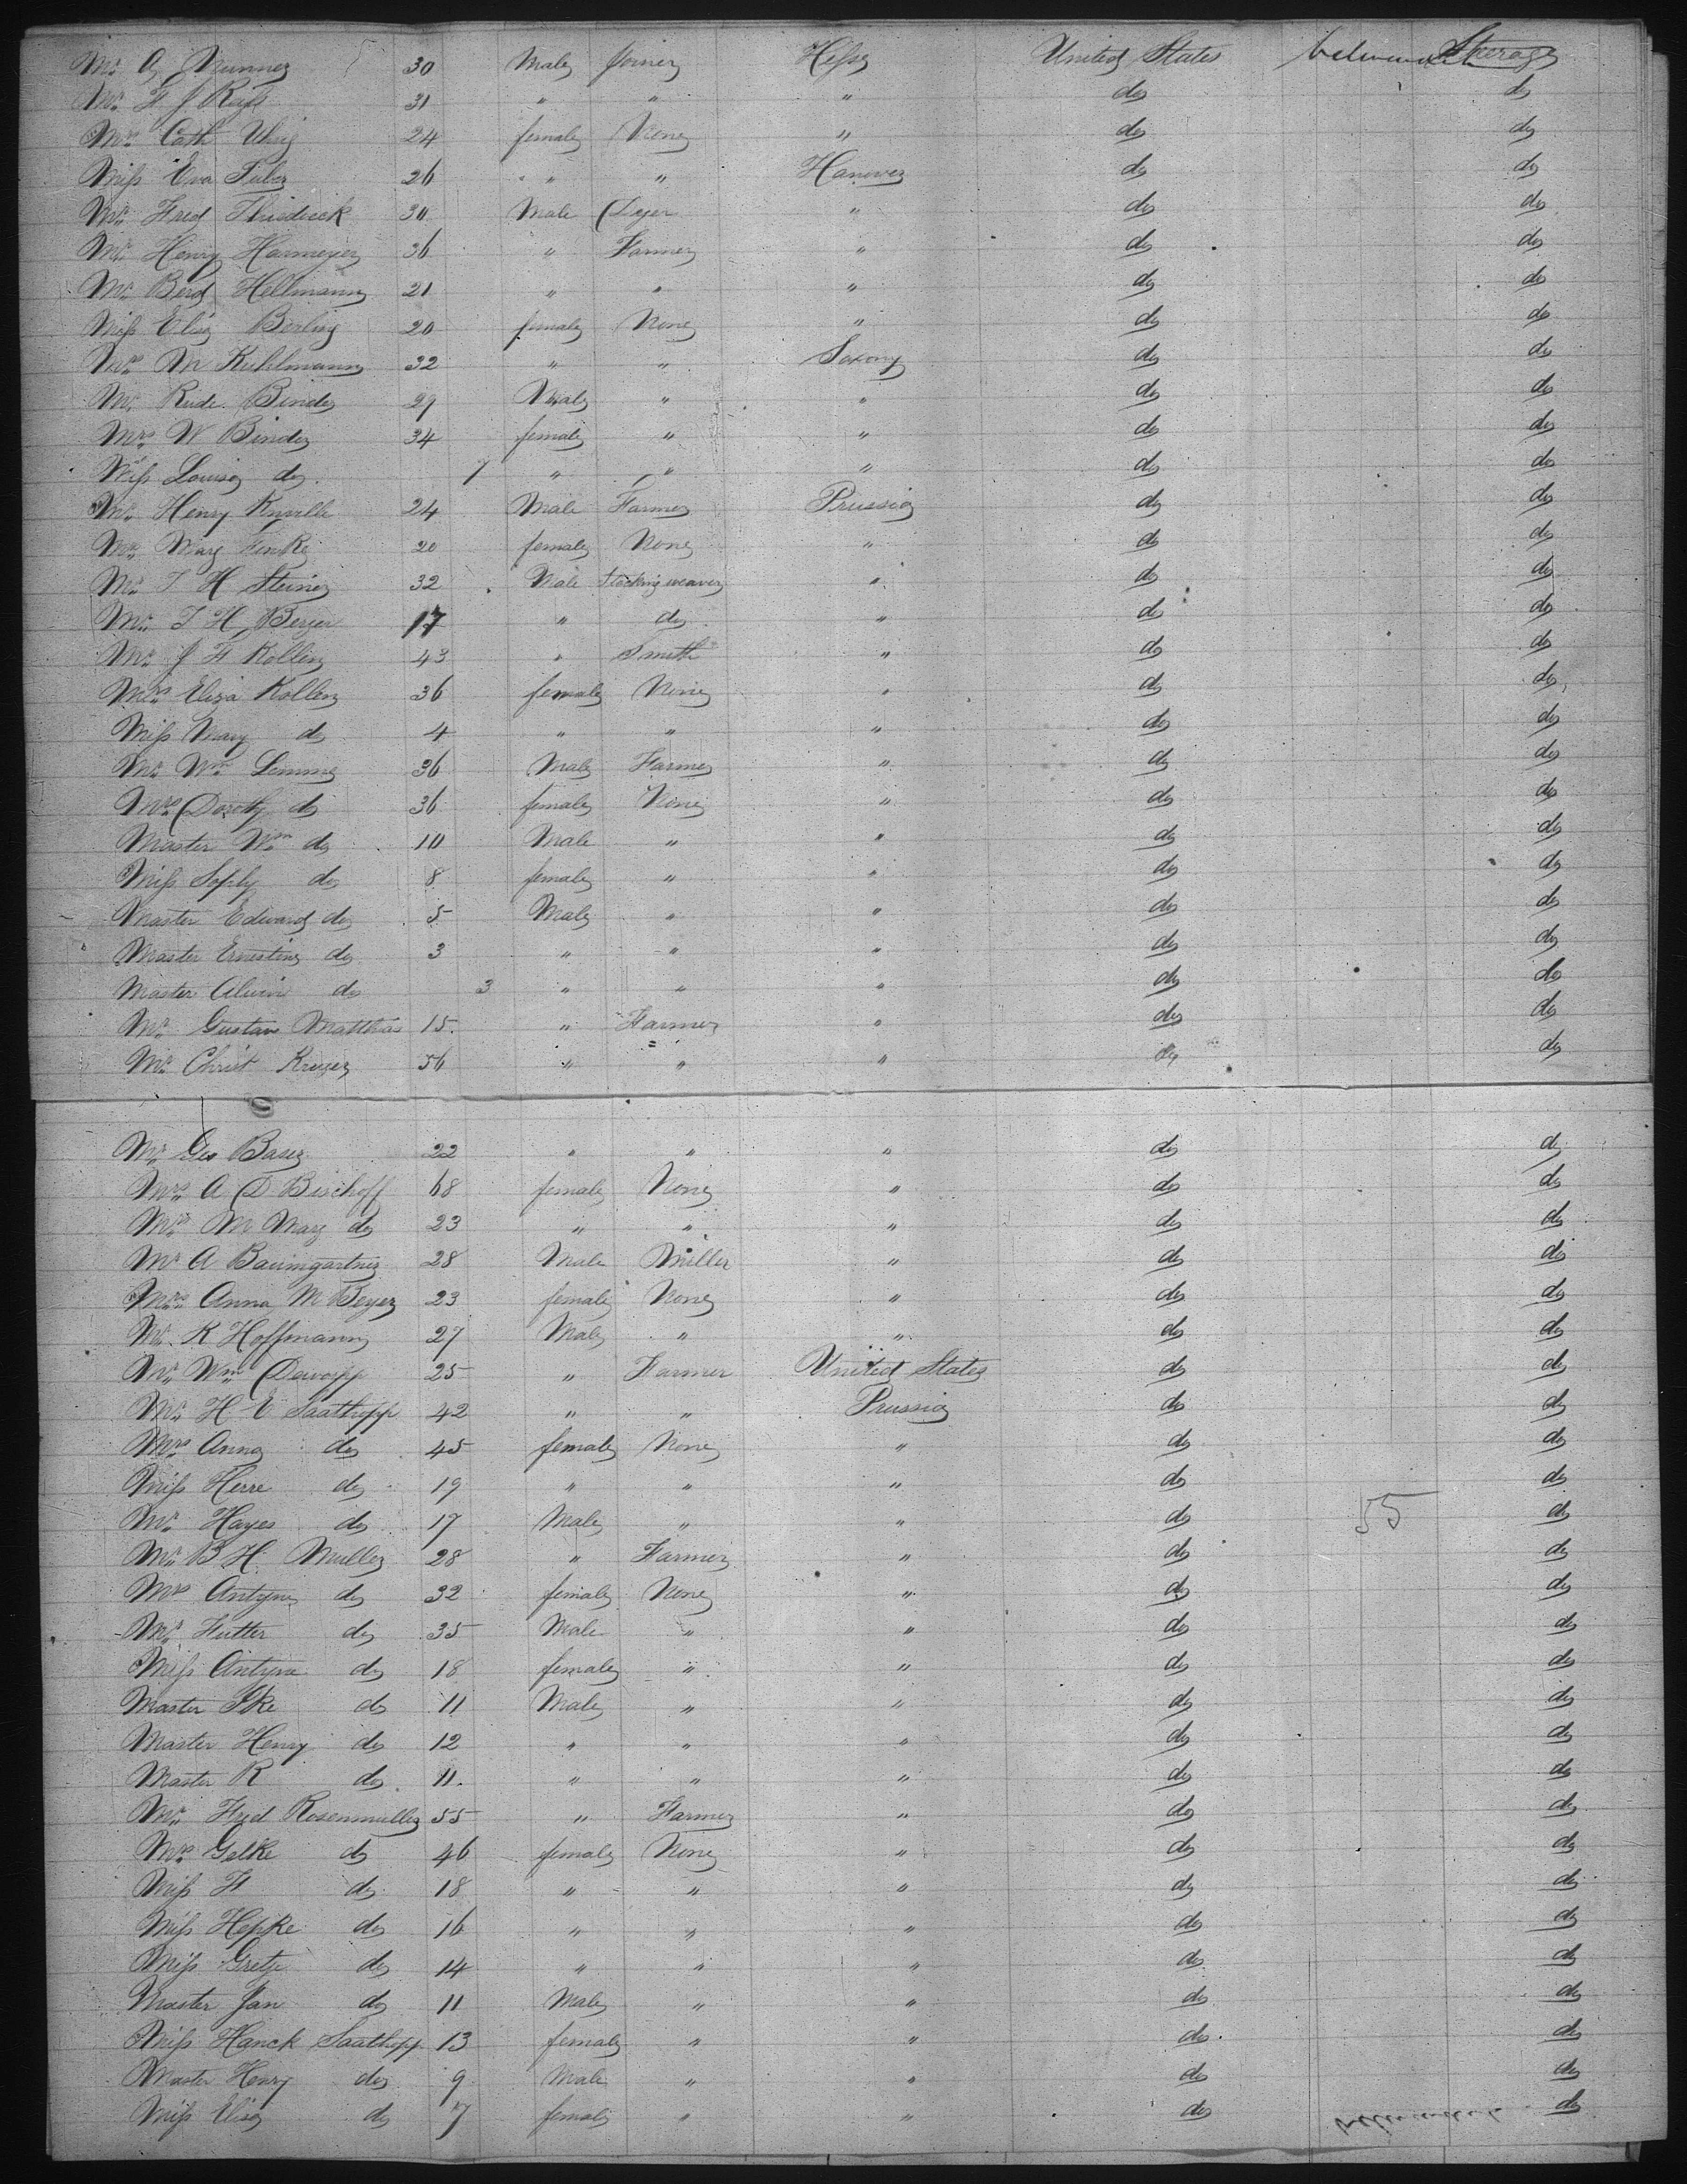 Mr A Nunner 30 Male Joiner Hesse United States between Steerage
Mr H J Rufs 31 " " " do do
Mrs Cath Uhrig 24 female None " do do
Miss Eva Tuber 26 " " Hanover do do
Mr Fred Thisdieck 30 Male Dyer " do do
Mr Henry Harmeyer 36 " Farmer " do do
Mr Berd Hellmann 21 " " " do do
Miss Elise Berling 20 female None " do do
Mrs M Kuhlmann 32 " " Saxony do do
Mr Rude. Binder 29 Male " " do do
Mrs W Binder 34 female " " do do
Miss Louise do. 7 " " " do do
Mr Henry Knville 24 Male Farmer Prussia do do
Mrs Mary Finke 20 female None " do do
Mr T H Steiner 32 Male Stocking weaver " do do
Mr T H Berger 17 " do " do do
Mr J H Kollen 43 " Smith " do do
Mrs Eliza Kollen 36 female None " do do
Miss Mary do 4 " " " do do
Mr Wm Lemme 36 Male Farmer " do do
Mrs Doroth do 36 female None " do do
Master Wm do 10 Male " " do do
Miss Sophy do 8 female " " do do
Master Edward do 5 Male " " do do
Master Ernestine do 3 " " " do do
Master Alwin do 3 " " " do do
Mr Gustav Matthias 15 " Farmer " do do
Mr Christ Kruger 56 " " " do do
Mr Geo Baser 22 " " " do do
Mrs A D Bischoff 68 female None " do do
Mrs M Mary do 23 " " " do do
Mr A Baumgartner 28 Male Miller " do do
Mrs Anna M Beyer 23 female None " do do
Mr K Hoffmann 27 Male " " do do
Mr Wm Dewopp 25 " Farmer United States do do
Mr H E Saathopp 42 " " Prussia do do
Mrs Anna do 45 female None " do do
Miss Herre do 19 " " " do do
Mr Hayes do 17 Male " " do 55 do
Mr B H. Muller 28 " Farmer " do do
Mrs Antyne do 32 female None " do do
Mr Hutter do 35 Male " " do do
Miss Antyne do 18 female " " do do
Master Ike do 11 Male " " do do
Master Henry do 12 " " " do do
Master R do 11. " " " do do
Mr Fred Rosenmuller 55 " Farmer " do do
Mrs Gelke do 46 female None " do do
Miss H do 18 " " " do do
Miss Hepke do 16 " " " do do
Miss Gretje do 14 " " " do do
Master Jan do 11 Male " " do do
Miss Hanck Saathopp 13 female " " do do
Master Henry do 9 Male " " do do
Miss Elise do 7 female " " do do